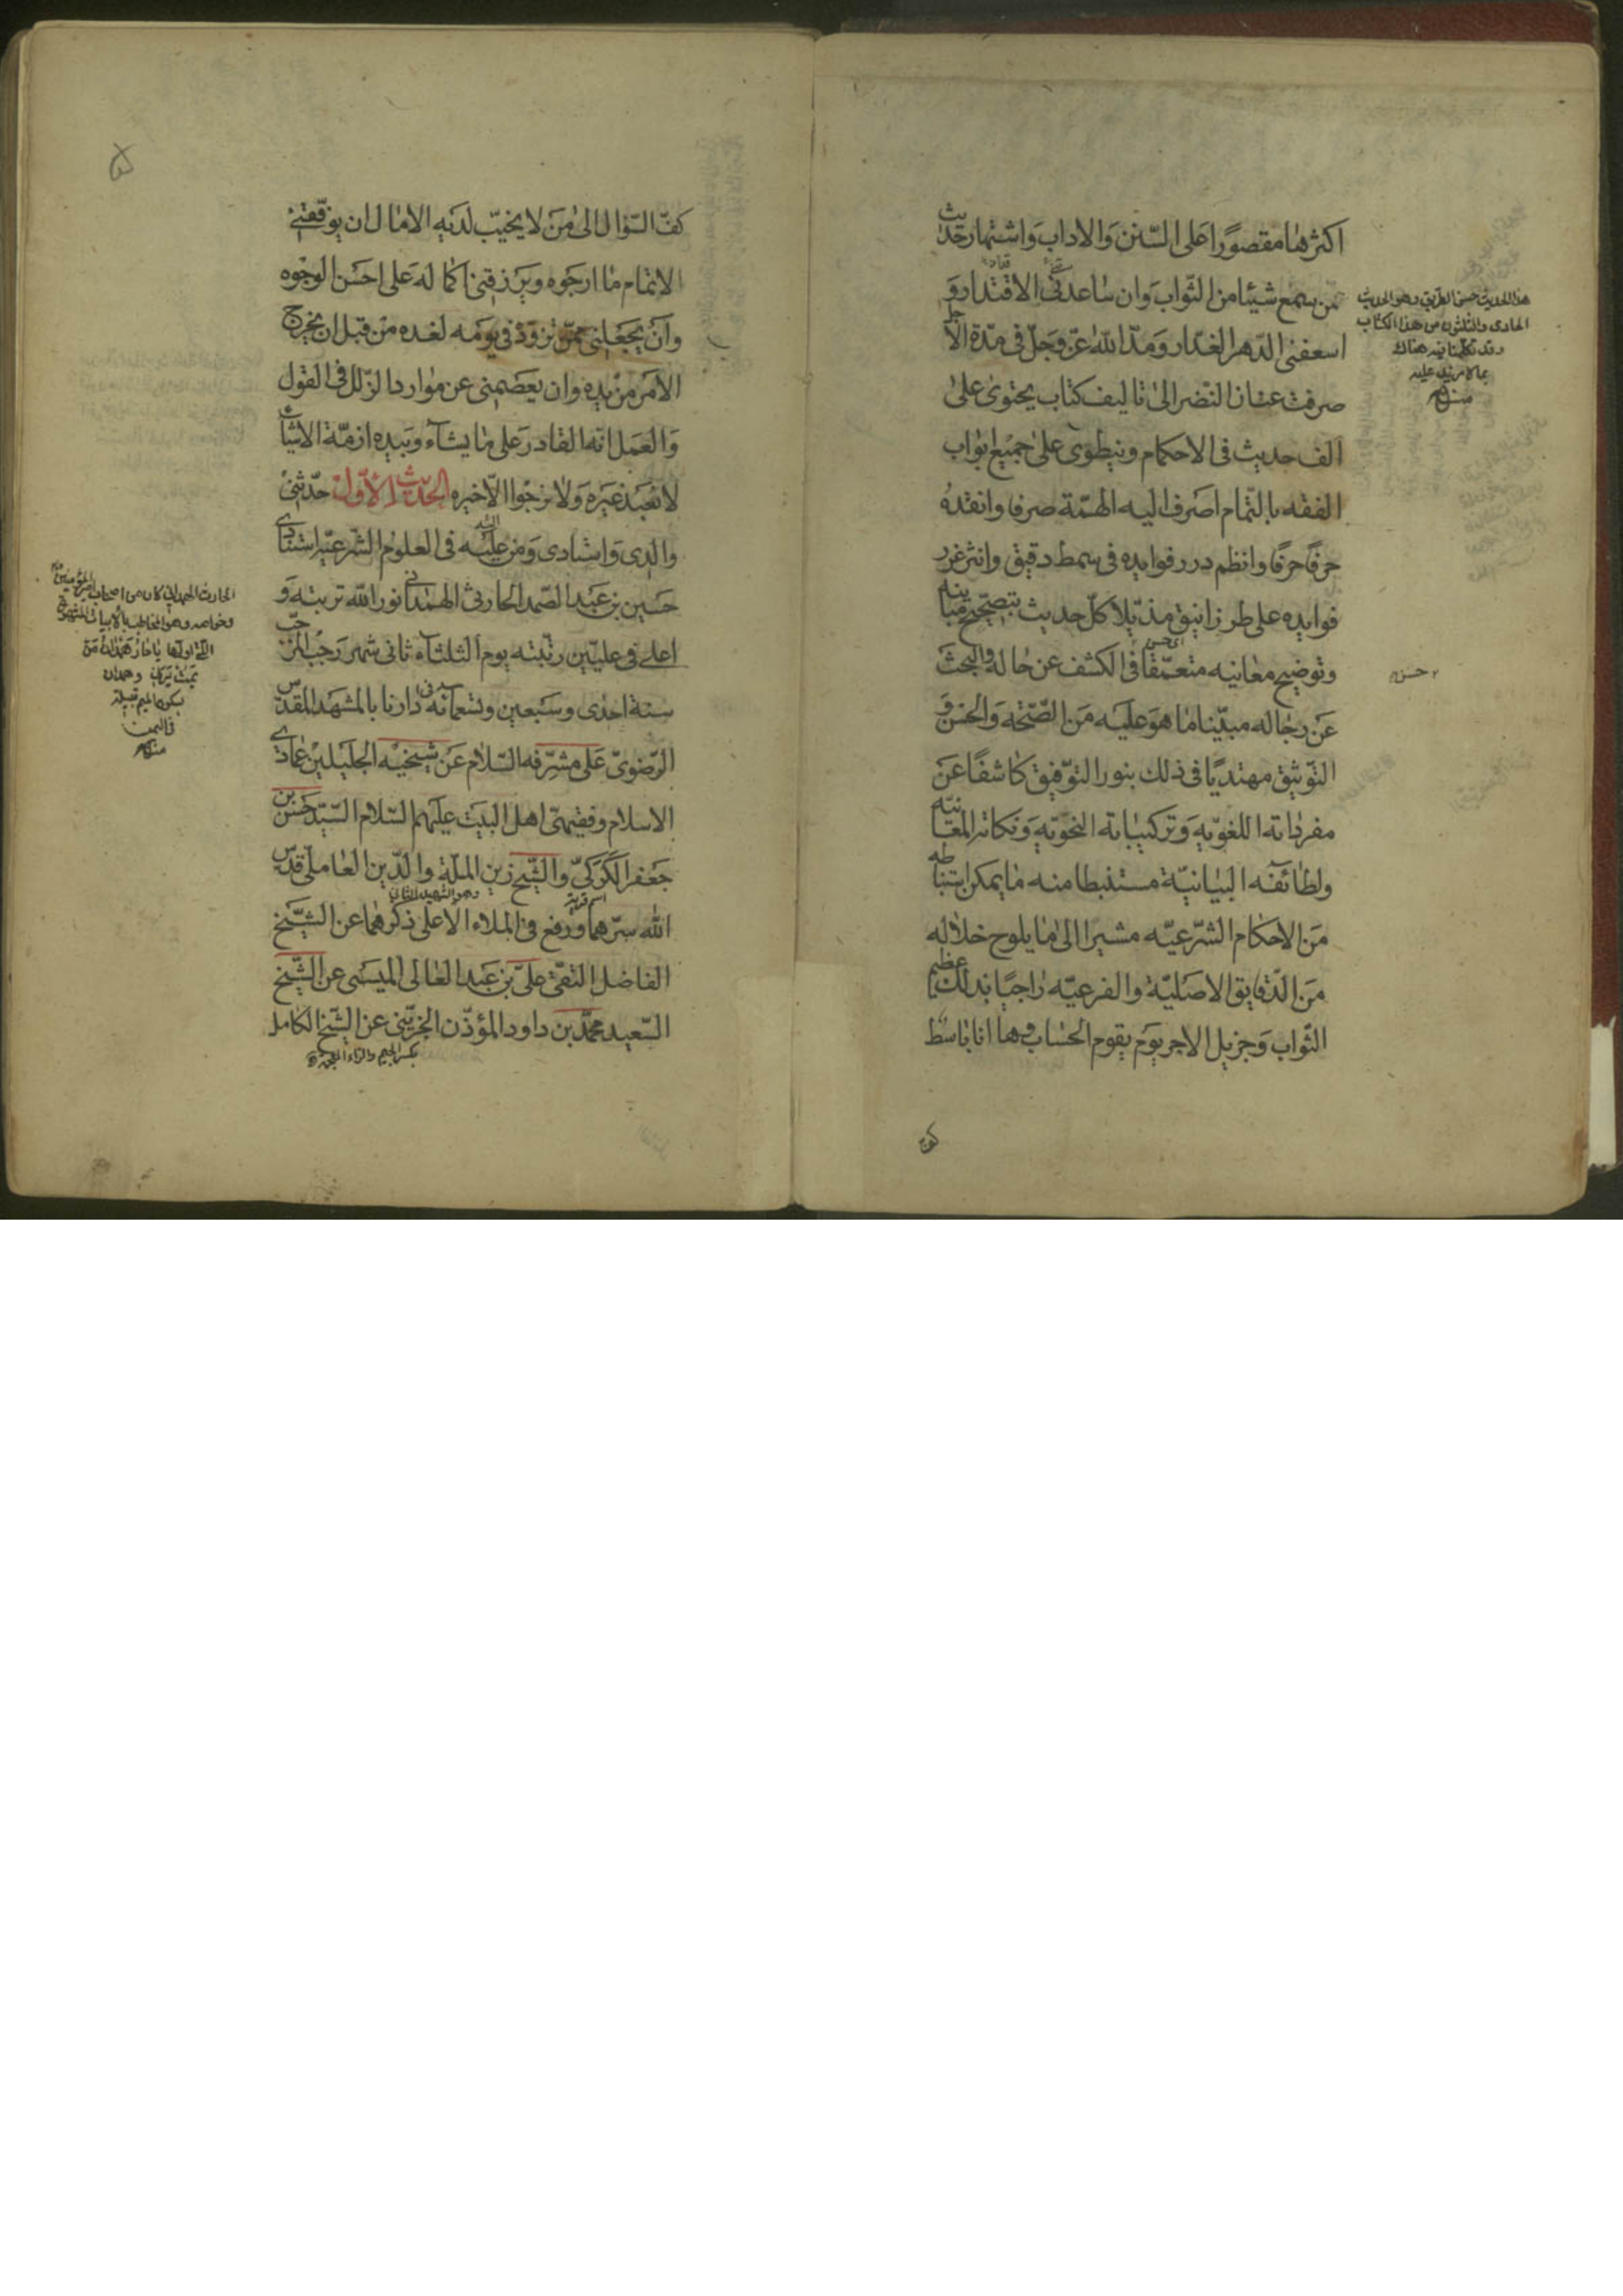 اكثرها مقصورا على السنن والاداب واشتهار حديث
من سمع شيئا من الثواب وان ساعدنى الاقتدار و
اسعفنى الدهر الغدار ومد الله عز وجل فى مدة الاجل
صرفت عنان النضر الى تاليف كتاب يحتوى على
الف حديث فى الاحكام وينطوى على جميع ابواب
الفقه بالتمام اصرف اليه الهمة صرفا وانقده
حرفا حرفا وانظم درر فوايده فى سمط دقيق وانثر غرر
فوايده على طرز انيق مذيلا كل حديث بتصحيح مبانيه
وتوضيح معانيه متعمقا فى الكشف عن حاله والبحث
عن رجاله مبينا ما هو عليه من الصحة والحسن و
التوثيق مهتديا فى ذلك بنور التوفيق كاشفا عن
مفرداته اللغوية وتركيباته النحوية ونكاته المعانية
ولطائفه البيانية مستنبطا منه ما يمكن استنباطه
من الاحكام الشرعيه مشيرا الى ما يلوح خلاله
من الدقايق الاصلية والفرعيه راجيا بذلك عظيم
الثواب وجزيل الاجر يوم يقوم الحساب وها انا باسط
هذا الحديث حسن الطريق وهو الحديث
الحادى والثلثون من هذا الكتاب
وقد تكلمنا فيه هناك
بما لا مزيد عليه
منه
حسن
كف
۵
كف السؤال الى من لا يخيب لديه الامال ان يوفقنى
لاتمام ما ارجوه ويرزقنى اكماله على احسن الوجوه
وان يجعلنى ممن تزود فى يومه لغده من قبل ان يخرج
الامر من يده وان يعصمنى عن موارد الزلل فى القول
والعمل انه القادر على ما يشاء وبيده ازمة الاشياء
لا نعبد غيره ولا نرجوا الا خيره الحديث الاول حدثنى
والدى واستادى ومن عليه فى العلوم الشرعيه استنادى
حسين بن عبد الصمد الحارثى الهمدانى نور الله تربته و
اعلى فى عليين رتبته يوم الثلثاء ثانى شهر رجب المرجب
سنة احدى وسبعين وتسعمائه فى دارنا بالمشهد المقدس
الرضوى على مشرفه السلام عن شيخيه الجليلين عمادى
الاسلام وفقيهى اهل البيت عليهم السلام السيد حسن بن
جعفر الكركى والشيخ زين الملة والدين العاملى قدس
الله سرهما ورفع فى الملاء الاعلى ذكرهما عن الشيخ
الفاضل التقى على بن عبد العالى الميسى عن الشيخ
السعيد محمد بن داود المؤذن الجزينى عن الشيخ الكامل
اسم قرية
وهو الشهيد الثانى
بكسر الجيم والزاء المعجمة
الحارث الهمدانى كان من اصحاب امير المؤمنين
وخواصه وهو المخاطب بالابيات المشهورة
التى اولها يا حار همدان من
يمت يرنى وهمدان
بسكون الميم قبيلة
فى اليمن
منه